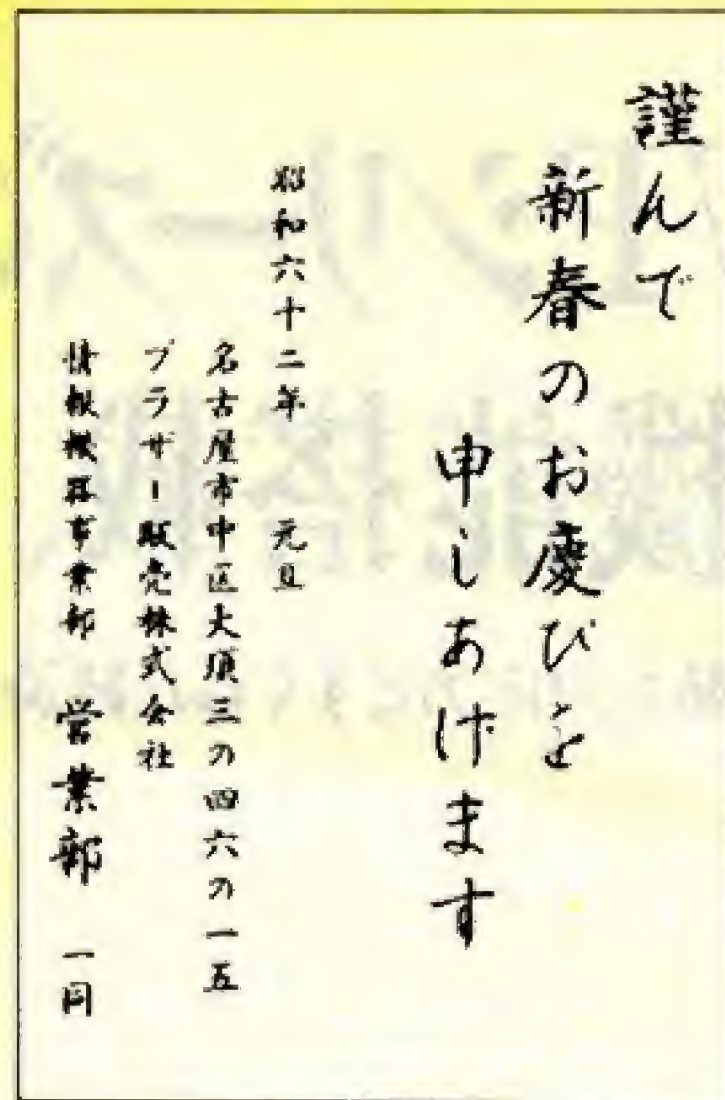 謹んで
新春のお慶びを
申しあげます
昭和六十二年 元旦
名古屋市中区大須三の四六の一五
ブラザー販売株式会社
情報機器事業部 営業部 一同